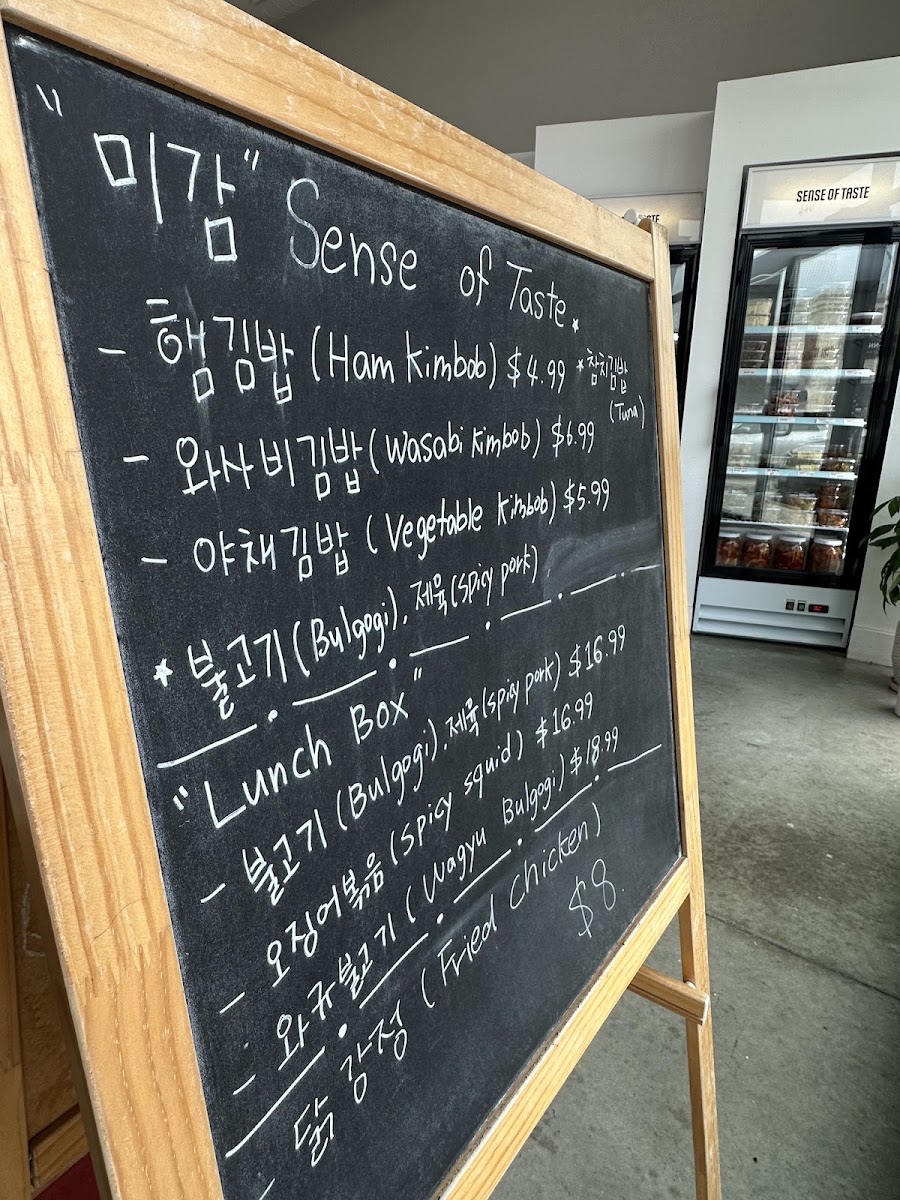 "미감" Sense of Taste.
- 햄김밥 (Ham Kimbob) $4.99 *참치김밥
(Tuna)
- 와사비김밥 (Wasabi Kimbob) $6.99
- 야채김밥 (Vegetable Kimbob) $5.99
* 불고기 (Bulgogi). 제육 (Spicy pork)
"Lunch Box"
- 불고기 (Bulgogi). 제육 (Spicy pork) $16.99
- 오징어볶음 (Spicy squid) $16.99
- 와규불고기 (Wagyu Bulgogi) $18.99
- 닭강정 (Fried Chicken)
$8.
SENSE OF TASTE